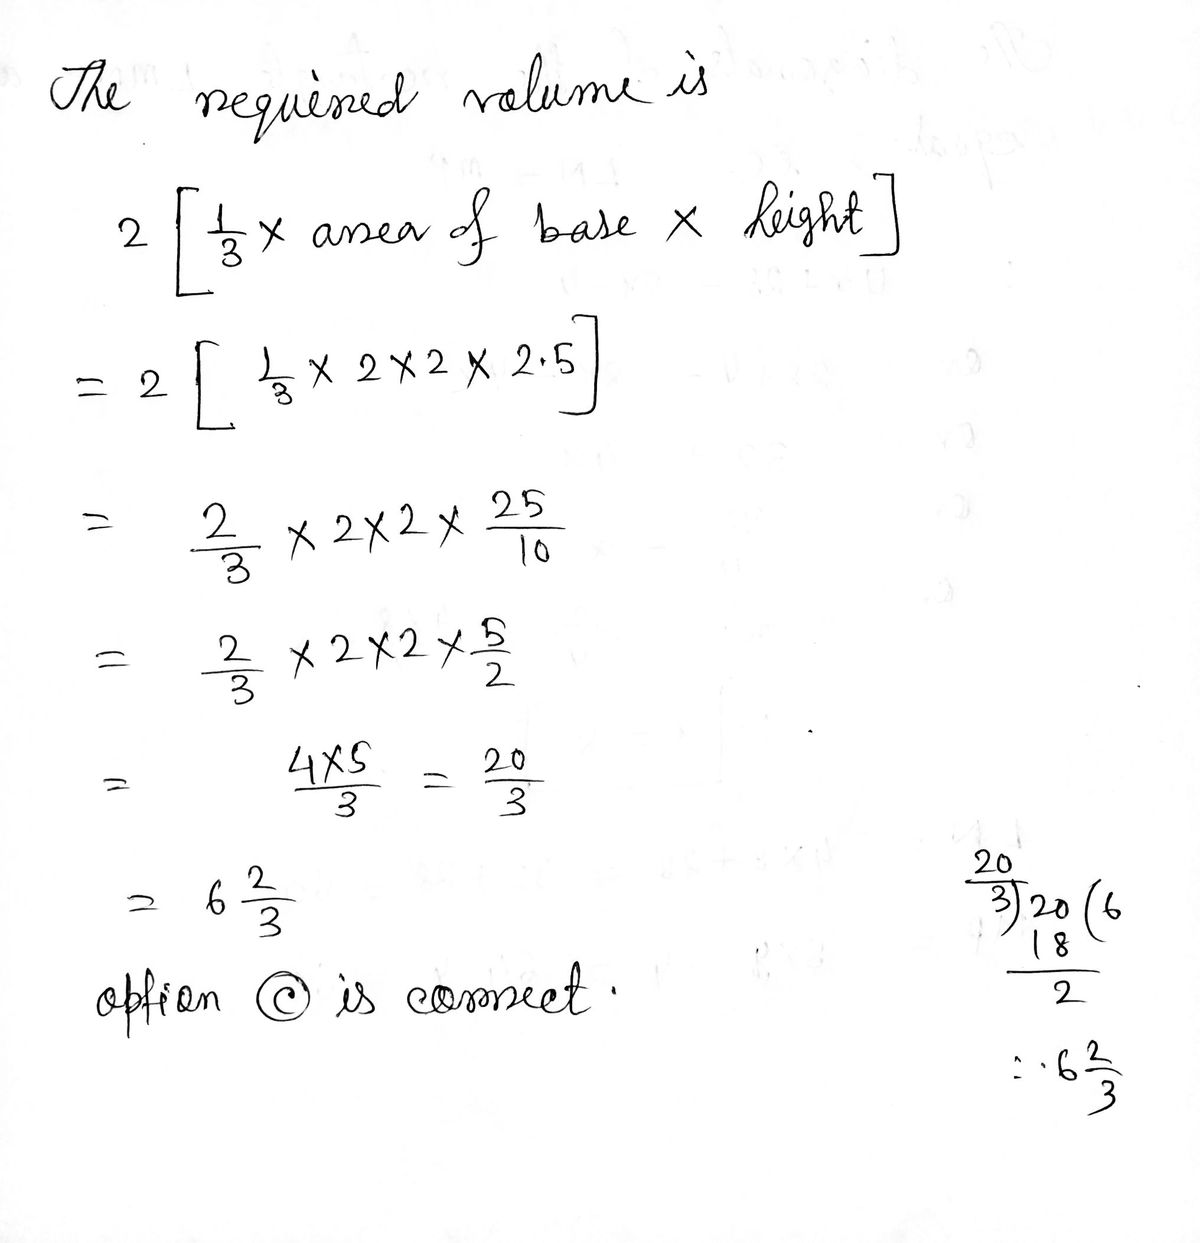 The required volume is
2 [ 1/3 × area of base × height ]
= 2 [ 1/3 × 2 × 2 × 2.5 ]
= 2/3 × 2 × 2 × 25/10
= 2/3 × 2 × 2 × 5/2
= 4×5/3 = 20/3
= 6 2/3
option ⓒ is correct.
20/3
3)20(6
18
2
∴ 6 2/3